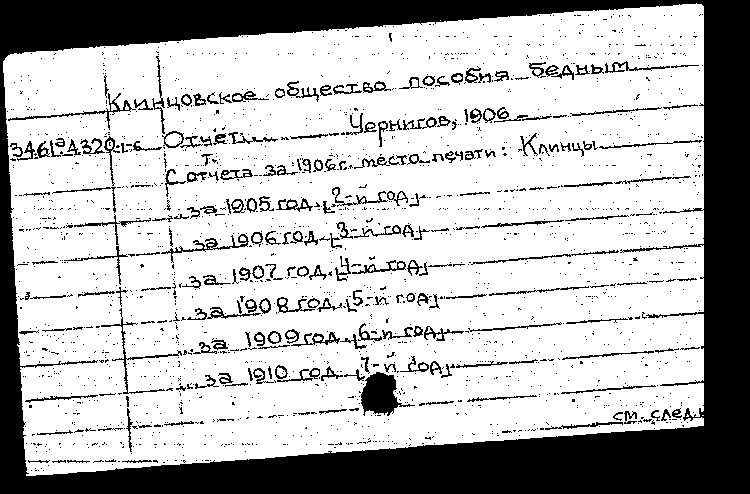 Клинцовское общество пособия бедным
3461°А320-1-6 Отчет... Чернигов, 1906 –
С отчета за 1906 г. место печати: Клинцы
...за 1905 год. [2-й год].
...за 1906 год. [3-й год].
...за 1907 год. [4-й год].
...за 1908 год. [5-й год].
...за 1909 год. [6-й год].
...за 1910 год. [7-й год].
см. след.